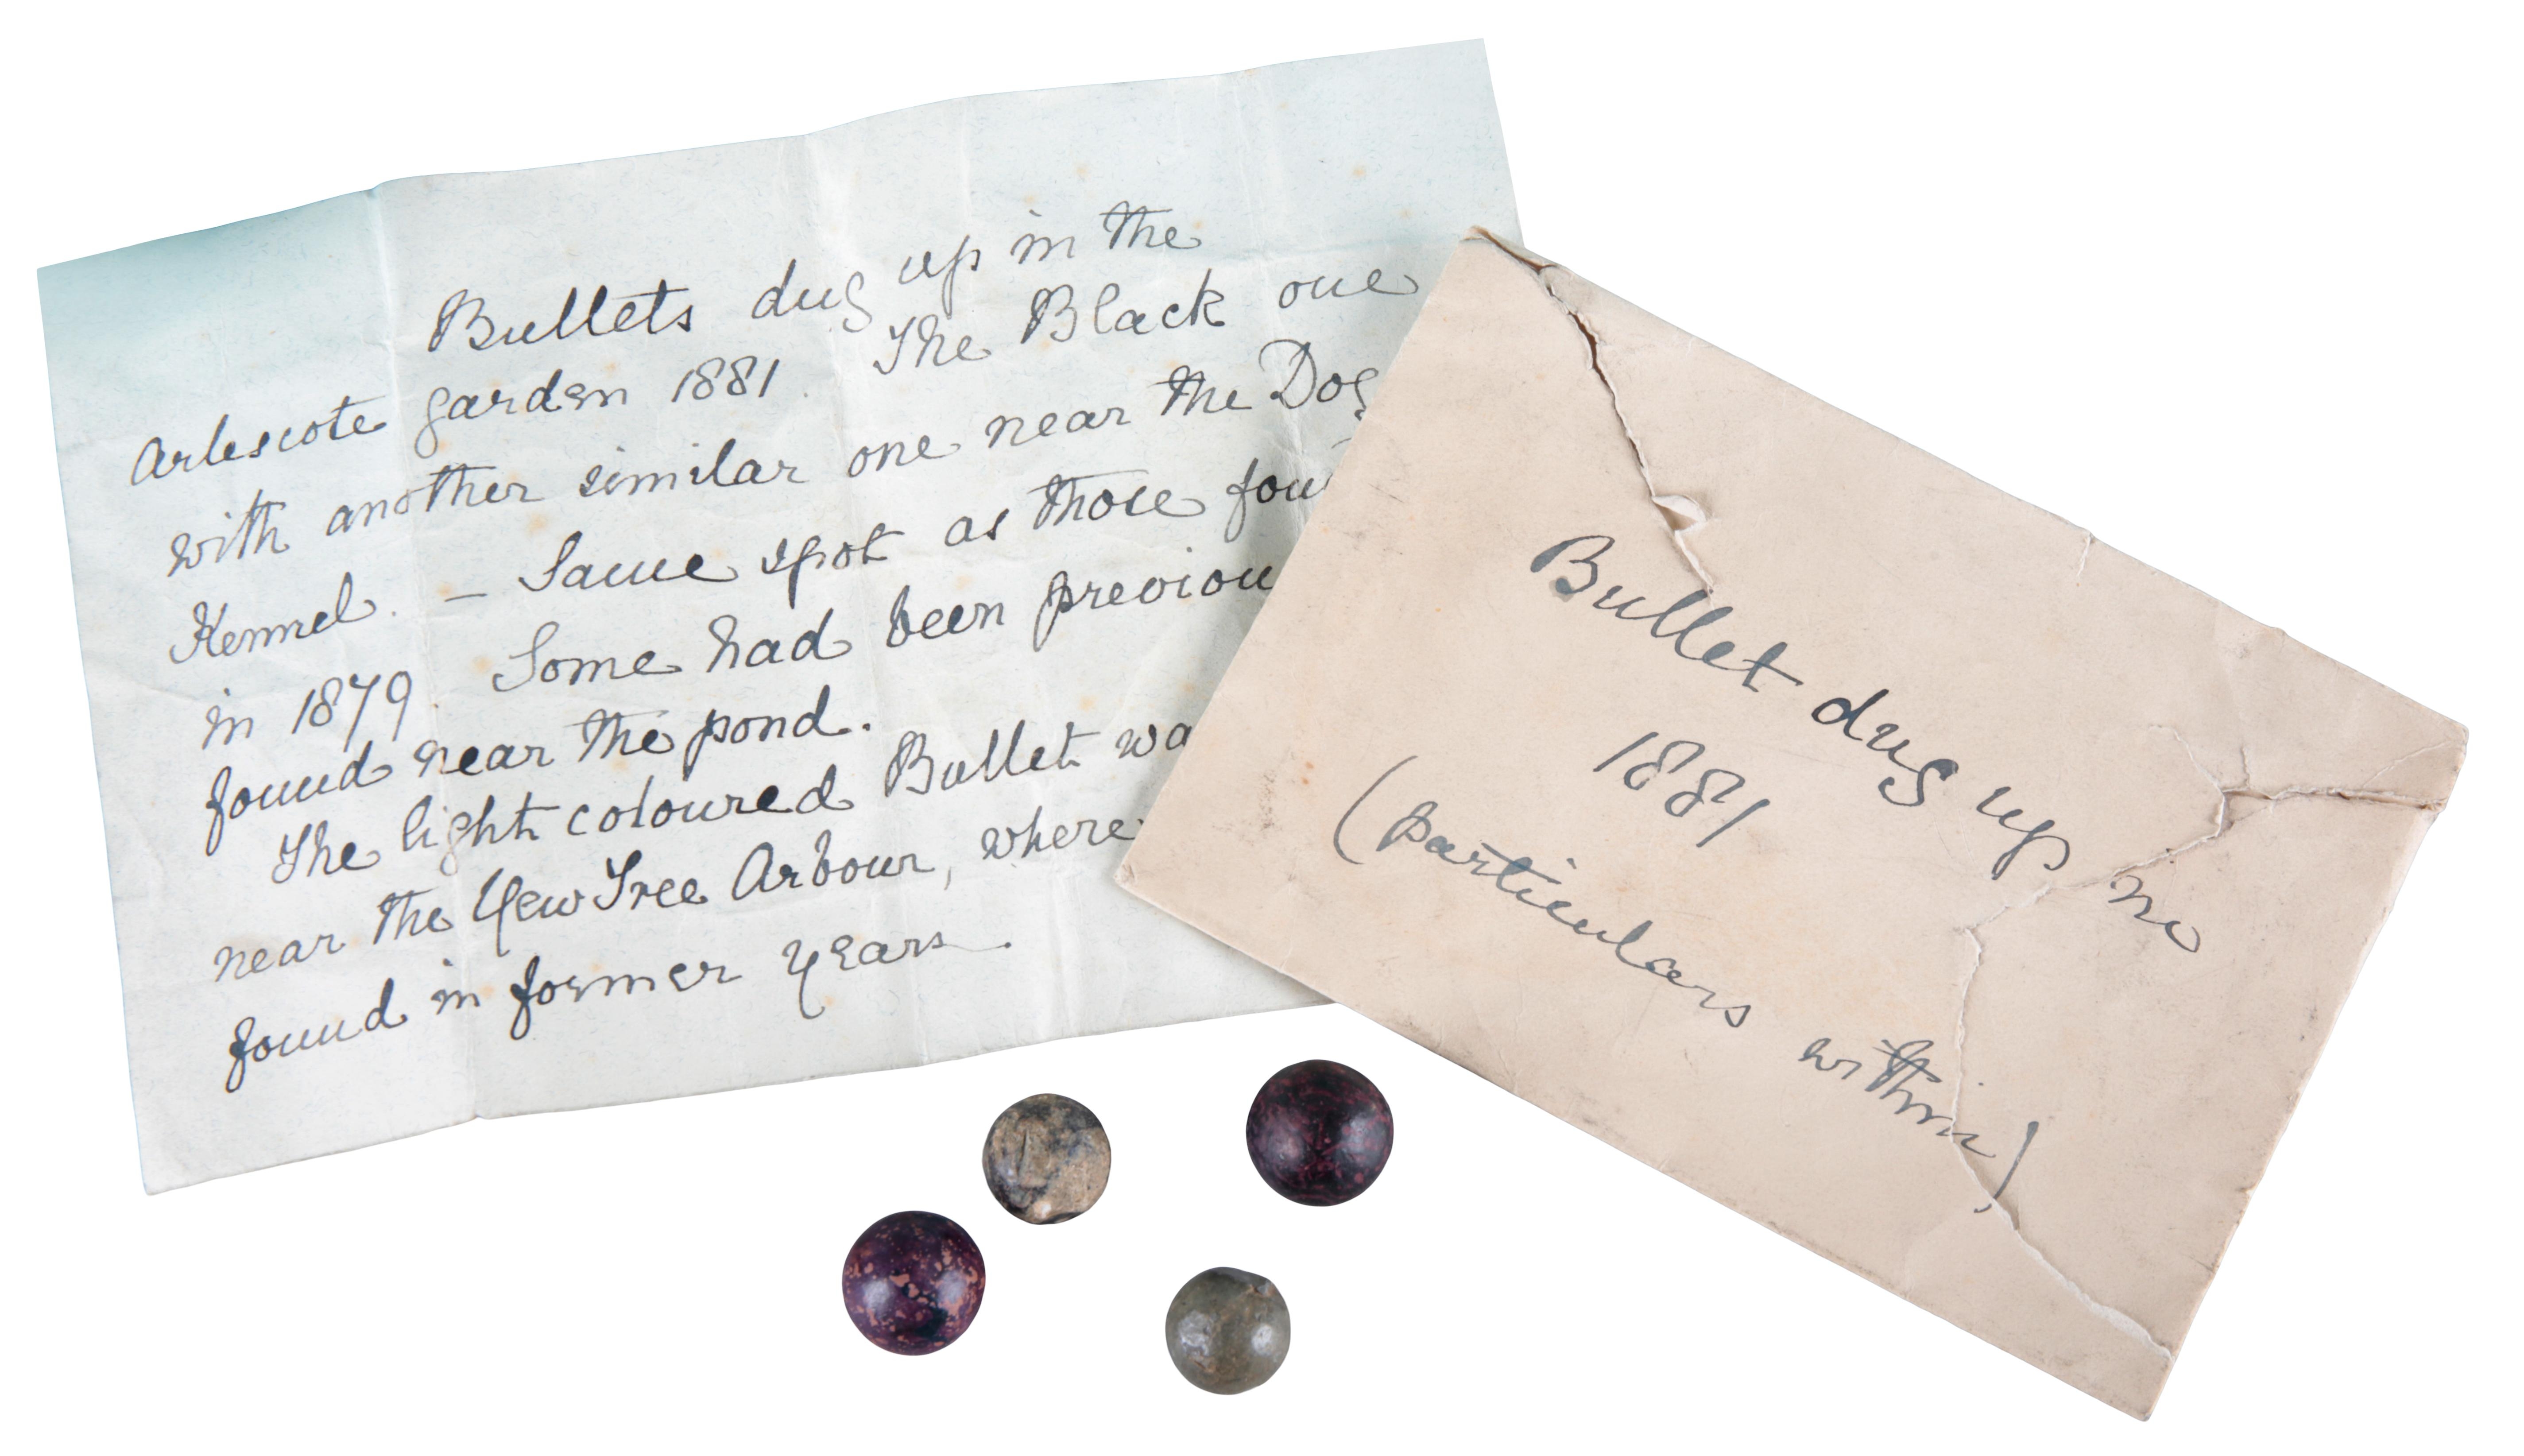 Bullets dug up in the
Arlescote garden 1881. The Black one
with another similar one near the Dog
Kennel. — Same spot as those fou
in 1879. Some had been previou
found near the pond.
The light coloured Bullet wa
near the Yew Tree Arbour, where
found in former years.
Bullet dug up in
1881
(particulars within)